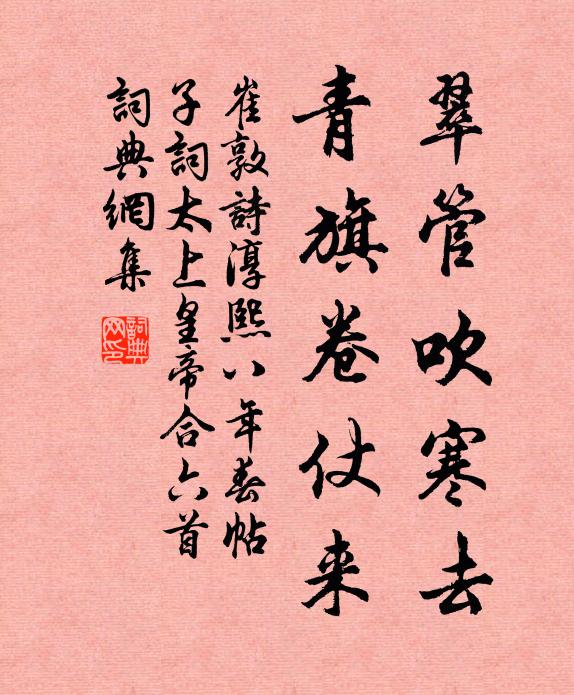 翠管吹寒去
青旗卷仗来
崔敦詩淳熙八年春帖
子詞太上皇帝合六首
詞典網集
詞典网印